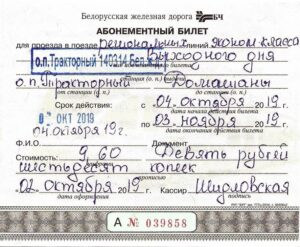 Белорусская железная дорога БЧ
АБОНЕМЕНТНЫЙ БИЛЕТ
для проезда в поездах региональных линий эконом-класса
о.п.Тракторный 140314 Бел. выходного дня
о.п. Тракторный до Домашаны
от станции (о. п.) до станции (о. п.)
Срок действия: с 04 октября 2019 г.
дата начала действия билета
02 ОКТ 2019 по 03 ноября 2019 г.
04 октября 19г. дата окончания действия билета
Ф.И.О. Документ
Стоимость: 9_60 Девять рублей
шестьдесят копеек
02 октября 2019 г. Кассир
дата оформления
А № 039858